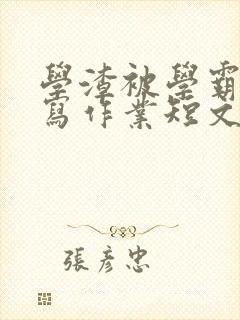 學渣被學霸
寫作業短文
張彥忠